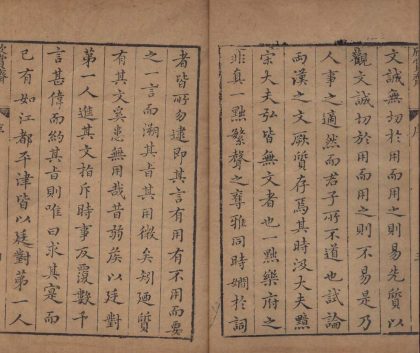 文誠無切於用而用之則易先質以
觀文誠切於用而用之則不易是乃
人事之適然而君子所不道也試論
兩漢之文厥質存焉其時汲大夫黯
宗大夫弘皆無文者也一點樂府之
非真一點繁聲之奪雅同時嫺於詞
者皆所勿逮即其言有用有不用而要
之一言而溯其旨其用微矣矧廼質
有其文奚患無用哉昔弱侯以廷對
第一人進其文指斥時事反覆數千
言甚偉而約其旨則唯曰求其寔而
已有如江都平津皆以廷對第一人